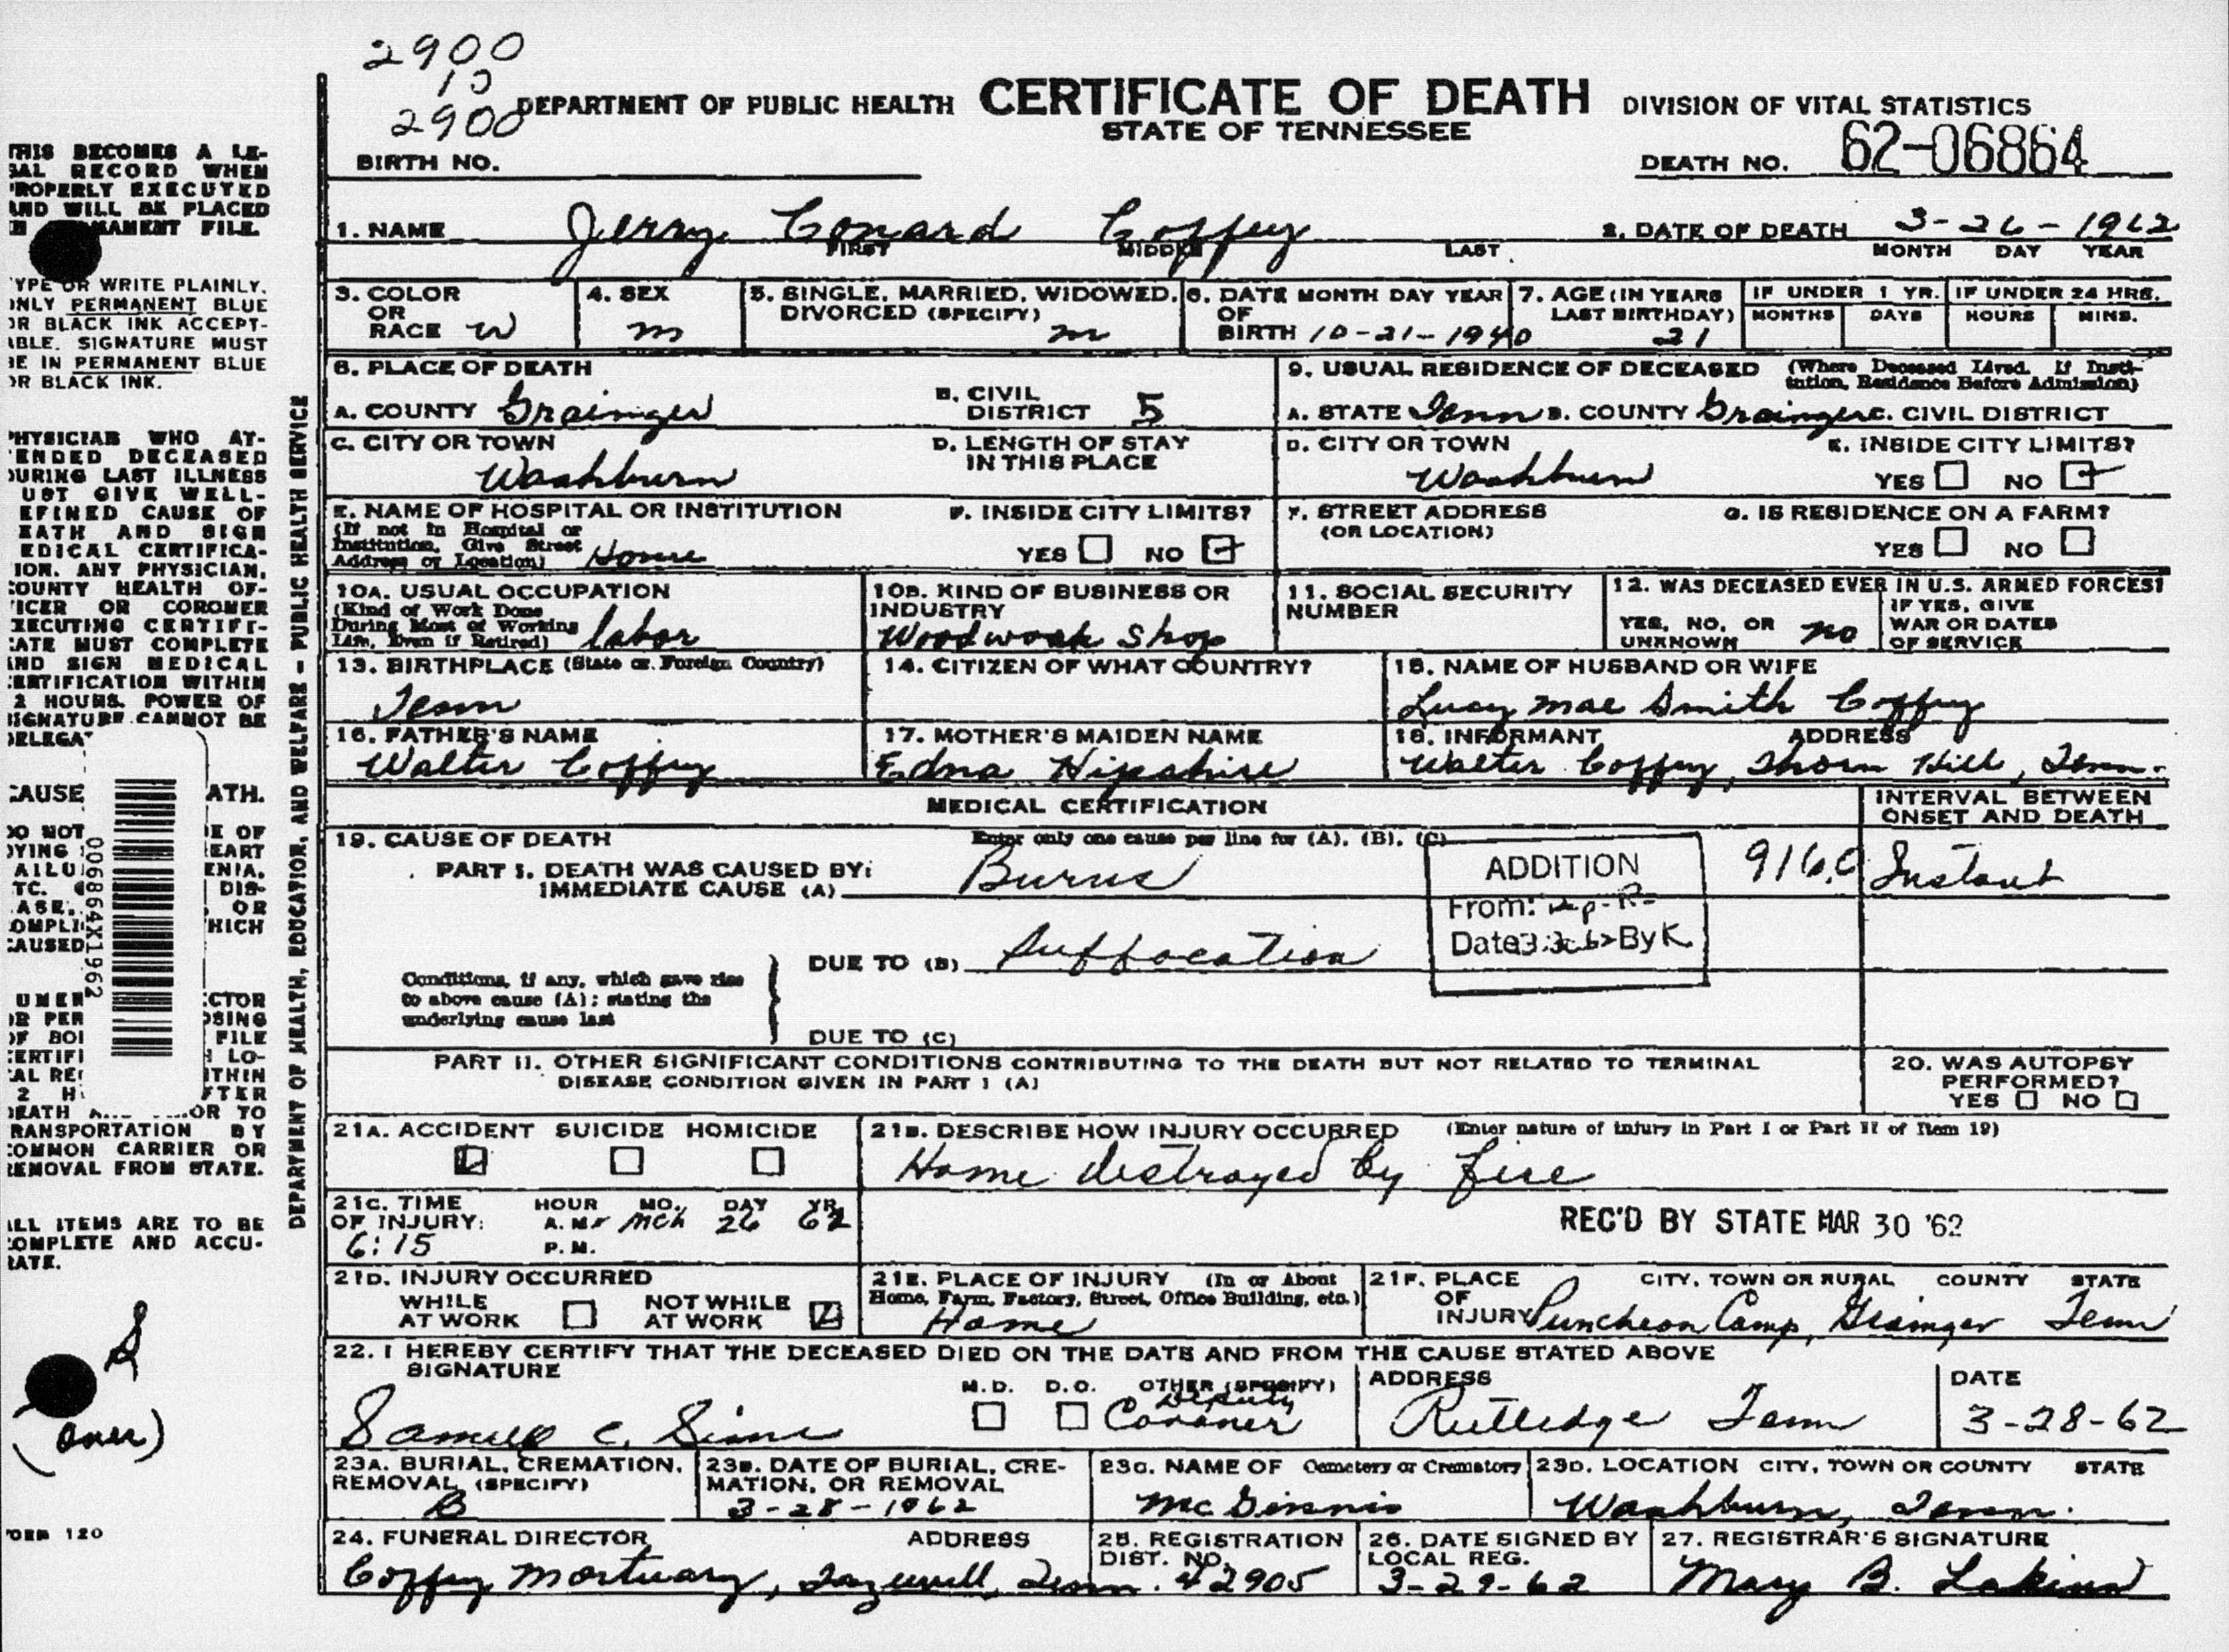 2900
10
2900
DEPARTMENT OF PUBLIC HEALTH CERTIFICATE OF DEATH DIVISION OF VITAL STATISTICS
STATE OF TENNESSEE
BIRTH NO. DEATH NO. 62-06864
1. NAME Jerry Conard Coffey 2. DATE OF DEATH 3-26-1962
FIRST MIDDLE LAST MONTH DAY YEAR
3. COLOR OR RACE W 4. SEX m 5. SINGLE, MARRIED, WIDOWED, DIVORCED (SPECIFY) m 6. DATE OF BIRTH MONTH DAY YEAR 10-21-1940 7. AGE (IN YEARS LAST BIRTHDAY) 21 IF UNDER 1 YR. MONTHS DAYS IF UNDER 24 HRS. HOURS MINS.
8. PLACE OF DEATH 9. USUAL RESIDENCE OF DECEASED (Where Deceased Lived. If Insti-
tution, Residence Before Admission)
A. COUNTY Grainger B. CIVIL DISTRICT 5 A. STATE Tenn B. COUNTY Grainger C. CIVIL DISTRICT
C. CITY OR TOWN Washburn D. LENGTH OF STAY IN THIS PLACE D. CITY OR TOWN Washburn E. INSIDE CITY LIMITS? YES NO
E. NAME OF HOSPITAL OR INSTITUTION (If not in Hospital or Institution, Give Street Address or Location) Home F. INSIDE CITY LIMITS? YES NO F. STREET ADDRESS (OR LOCATION) G. IS RESIDENCE ON A FARM? YES NO
10A. USUAL OCCUPATION (Kind of Work Done During Most of Working Life, Even if Retired) labor 10B. KIND OF BUSINESS OR INDUSTRY Woodwork Shop 11. SOCIAL SECURITY NUMBER 12. WAS DECEASED EVER IN U.S. ARMED FORCES? YES, NO, OR UNKNOWN no IF YES, GIVE WAR OR DATES OF SERVICE
13. BIRTHPLACE (State or Foreign Country) Tenn 14. CITIZEN OF WHAT COUNTRY? 15. NAME OF HUSBAND OR WIFE Lucy Mae Smith Coffey
16. FATHER'S NAME Walter Coffey 17. MOTHER'S MAIDEN NAME Edna Hipshire 18. INFORMANT ADDRESS Walter Coffey, Thorn Hill, Tenn.
MEDICAL CERTIFICATION INTERVAL BETWEEN ONSET AND DEATH
19. CAUSE OF DEATH Enter only one cause per line for (A), (B), (C)
PART I. DEATH WAS CAUSED BY:
IMMEDIATE CAUSE (A) Burns 916.0 Instant
ADDITION
From:
Date By K
DUE TO (B) Suffocation
Conditions, if any, which gave rise
to above cause (A); stating the
underlying cause last
DUE TO (C)
PART II. OTHER SIGNIFICANT CONDITIONS CONTRIBUTING TO THE DEATH BUT NOT RELATED TO TERMINAL
DISEASE CONDITION GIVEN IN PART I (A)
20. WAS AUTOPSY PERFORMED? YES NO
21A. ACCIDENT SUICIDE HOMICIDE 21B. DESCRIBE HOW INJURY OCCURRED (Enter nature of injury in Part I or Part II of Item 19)
Home destroyed by fire
21C. TIME OF INJURY: 6:15 HOUR A.M. P.M. MO. Mch DAY 26 YR. 62
REC'D BY STATE MAR 30 '62
21D. INJURY OCCURRED WHILE AT WORK NOT WHILE AT WORK 21E. PLACE OF INJURY (In or About Home, Farm, Factory, Street, Office Building, etc.) Home 21F. PLACE OF INJURY CITY, TOWN OR RURAL COUNTY STATE Puncheon Camp, Grainger Tenn
22. I HEREBY CERTIFY THAT THE DECEASED DIED ON THE DATE AND FROM THE CAUSE STATED ABOVE
SIGNATURE M.D. D.O. OTHER (SPECIFY) ADDRESS DATE
Samuel C. Sims Deputy Coroner Rutledge Tenn 3-28-62
23A. BURIAL, CREMATION, REMOVAL (SPECIFY) B 23B. DATE OF BURIAL, CRE-
MATION, OR REMOVAL 3-28-1962 23C. NAME OF Cemetery or Crematory McGinnis 23D. LOCATION CITY, TOWN OR COUNTY STATE Washburn, Tenn.
24. FUNERAL DIRECTOR ADDRESS Coffey Mortuary, Tazewell, Tenn. 25. REGISTRATION DIST. NO. 42905 26. DATE SIGNED BY LOCAL REG. 3-29-62 27. REGISTRAR'S SIGNATURE Mary B. Lakins
DEPARTMENT OF HEALTH, EDUCATION, AND WELFARE - PUBLIC HEALTH SERVICE
THIS BECOMES A LE-
GAL RECORD WHEN
PROPERLY EXECUTED
AND WILL BE PLACED
FILE.
TYPE OR WRITE PLAINLY.
ONLY PERMANENT BLUE
OR BLACK INK ACCEPT-
ABLE. SIGNATURE MUST
BE IN PERMANENT BLUE
OR BLACK INK.
PHYSICIAN WHO AT-
TENDED DECEASED
DURING LAST ILLNESS
MUST GIVE WELL-
DEFINED CAUSE OF
DEATH AND SIGN
MEDICAL CERTIFICA-
TION. ANY PHYSICIAN,
COUNTY HEALTH OF-
FICER OR CORONER
EXECUTING CERTIFI-
CATE MUST COMPLETE
AND SIGN MEDICAL
CERTIFICATION WITHIN
72 HOURS. POWER OF
SIGNATURE CANNOT BE
006864X1962
DEATH OR TO
TRANSPORTATION BY
COMMON CARRIER OR
REMOVAL FROM STATE.
ALL ITEMS ARE TO BE
COMPLETE AND ACCU-
RATE.
(over)
FORM 120